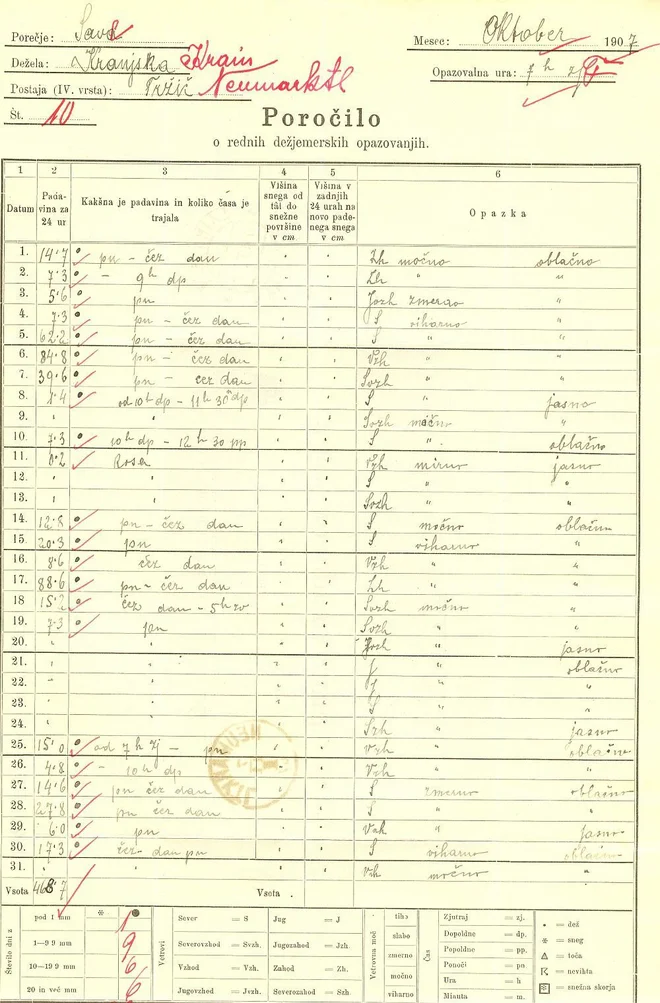 Porečje: Sava
Mesec: Oktober 1907
Dežela: Kranjska Krain
Opazovalna ura: 7 h
Postaja (IV. vrsta): Tržič Neumarktl
Št. 10
Poročilo
o rednih dežjemerskih opazovanjih.
1 2 3 4 5 6
Datum Pada-vina za 24 ur Kakšna je padavina in koliko časa je trajala Višina snega od tal do snežne površine v cm Višina v zadnjih 24 urah na novo padenega snega v cm Opazka
1. 14·7 • pn - čez dan Zh močno oblačno
2. 7·3 • - 9h dp Zh " "
3. 5·6 • pn Jozh zmerno "
4. 7·3 • pn - čez dan S viharno "
5. 62·2 • pn - čez dan S " "
6. 84·8 • pn - čez dan Vzh " "
7. 39·6 • pn - čez dan Svzh " "
8. 1·4 • od 10h dp - 11h 30 dp S " jasno
9. Svzh močno "
10. 7·3 • 10h dp - 12h 30 pp S " oblačno
11. 0·2 • Rosa Vzh mirno jasno
12. S " "
13. Svzh " "
14. 12·8 • pn - čez dan S močno oblačno
15. 20·3 • pn S viharno "
16. 8·6 • čez dan Vzh " "
17. 88·6 • pn - čez dan Zh " "
18 15·2 • čez dan - 5h zv Svzh močno "
19. 7·3 • pn Svzh " "
20. Jozh " jasno
21. J " oblačno
22. " "
23. S " "
24. Szh " jasno
25. 15·0 • od 7h zj - pn Vzh " oblačno
26. 4·8 • - 10h dp Vzh " "
27. 14·6 • pn čez dan S zmerno oblačno
28. 27·8 • pn čez dan S " "
29. 6·0 • pn Vzh " jasno
30. 17·3 • čez dan pn S viharno oblačno
31. Vzh močno
Vsota 468·7 Vsota .
Število dni z
pod 1 mm 1
1—9·9 mm 9
10—19·9 mm 6
20 in več mm 6
* •
Vetrovi
Sever = S Jug = J
Severovzhod = Svzh. Jugozahod = Jzh.
Vzhod = Vzh. Zahod = Zh.
Jugovzhod = Jvzh. Severozahod = Szh.
Vetrovna moč
tiho
slabo
zmerno
močno
viharno
Čas
Zjutraj = zj.
Dopoldne = dp.
Popoldne = pp.
Ponoči = pn
Ura = h
Minuta = m.
• = dež
* = sneg
△ = toča
= nevihta
= snežna skorja